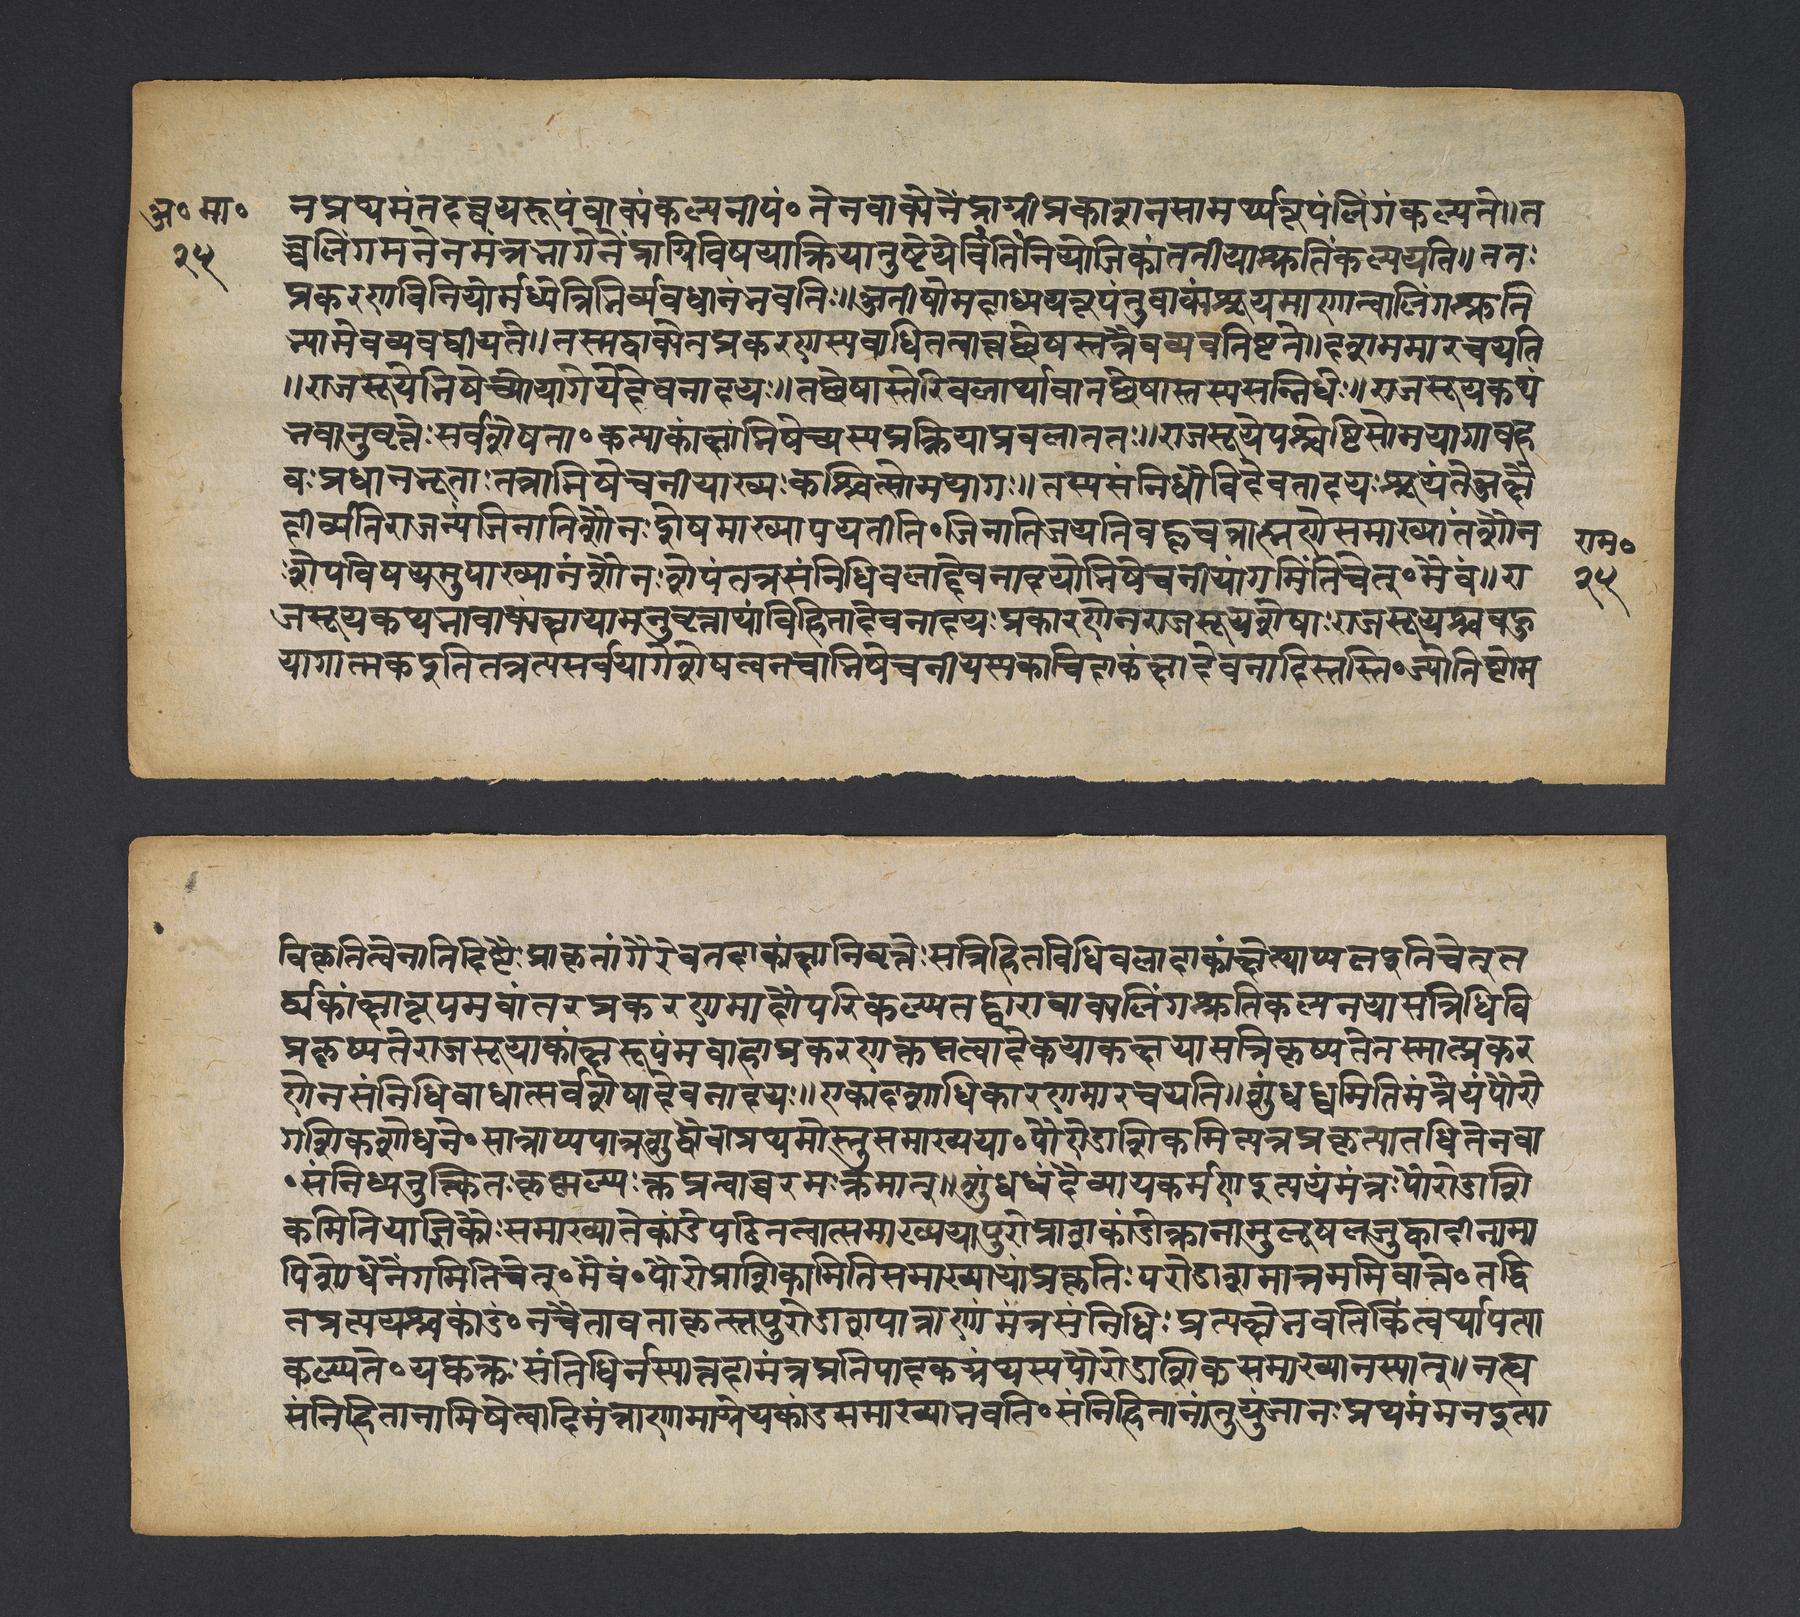 अ॰ मा॰
२५
नप्रथमंतदन्वयरूपंवाक्यंकल्पनीयं॰ तेनवाक्येनेंद्राग्नीप्रकाशनसामर्थ्यरूपंलिंगंकल्पते॥त
च्चलिंगमनेनमंत्रभागेनेंद्राग्निविषयाक्रियानुष्टेयेतिविनियोजिकांततीयाश्रुतिंकल्पयति॥ततः
प्रकरणविनियोगमध्येत्रिभिर्व्यवधानंभवति॥अग्नीषोमपदान्वयरूपंतुवाक्यंश्रूयमाणत्वाल्लिंगश्रुति
भ्यामेवव्यवधीयते॥तस्मद्वाक्येनप्रकरणस्यबाधितत्वात्तछेषस्तत्रैवव्यवतिष्टते॥दशममारचयति
॥राजसूयेभिषेच्योयागेयेदेवनादयः॥तछेषास्तेरिवलार्थावातछेषास्तस्यसन्निधेः॥राजसूयकथं
भावानुवृत्तेःसर्वशेषता॰कल्पाकांक्षाभिषेच्यस्यप्रक्रियाप्रबलाततः॥राजसूयेपश्विष्टिसोमयागाबह
वःप्रधानभूताःतत्राभिषेचनीयाख्यःकश्चित्सोमयागः॥तस्यसंनिधौविदेवनादयःश्रूयंतेअक्षै
र्दीव्यतिराजन्यंजिनातिशौनःशेषमाख्यापयतीति॰जिनातिजयतिबह्वृचब्राह्मणेसमाख्यातंशौन
ःशेपविषयमुपाख्यानंशौनःशेपंतत्रसंनिधिबलाद्देवनादयोभिषेचनीयांगमितिचेत्॰मैवं॥रा
राम॰
२५
जसूयकथंभावाकांक्षायामनुवृत्तायांविहितादेवनादयःप्रकारणेनराजसूयशेषाःराजसूयश्चबहु
यागात्मकइतितत्रत्यसर्वयागशेषत्वनचाभिषेचनीयस्यकाचिदाकंक्षादेवनादिस्तस्ति॰ज्योतिष्टोम
विकृतित्वेनातिदिष्टैःप्राकृतांगैरेवतदाकांक्षानिवृत्तेःसन्निहितविधिबलादाकांक्षोत्थाप्यतइतिचेत्त
र्द्यकांक्षारूपमवांतरप्रकरणमादौपरिकल्प्यतद्द्वारावाक्यलिंगश्रुतिकल्पनयासन्निधिवि
प्रकृष्यतेराजसूयाकांक्षरूपंमवाहाप्रकरणक्लप्तत्वादेकयाकक्षयासन्निकृष्यतेतस्मात्प्रकर
णेनसंनिधिबाधात्सर्वशेषादेवनादयः॥एकादशाधिकारणमारचयति॥शुंधध्वमितिमंत्रेयंपौरो
गशिकशोधने॰सान्नाय्यपात्रशुद्धौवाप्रथमोस्तुसमाख्यया॰पौरोडाशिकमित्यत्रप्रकृत्यातधितेनवा
॰संनिध्यनुत्क्रितःकृल्पःक्लप्रत्वाच्चरमःक्रमात्॥शुंधधंदैव्यायकर्मणइत्ययंमंत्रःपौरोडाशि
कमितियाज्ञिकैःसमाख्यातेकांडेपठितत्वात्समाख्ययापुरोडाशकांडोक्तानामुलूषलजुकादीनामा
पिशोधनेंगमितिचेत्॰मैवं॰पौरोडाशिकामितिसमाख्यायांप्रकृतिःपरोडाशमात्रममिवात्ते॰तद्धि
तप्रत्ययश्चकांडं॰नचैतावताकृत्स्नपुरोडाशपात्राणांमंत्रसंनिधिःप्रत्यक्षोभवतिकिंत्वर्थापत्या
कल्प्यते॰यकक्तःसंतिधिर्नस्यात्तदामंत्रप्रतिपादकग्रंथस्यपौरोडाशिकसमाख्यानस्यात्॥नह्य
संनिहितानामिषेत्वादिमंत्राणामाग्नेयकांडसमाख्यानवति॰संनिहितानांतुयुंजानःप्रथमंमनइत्या